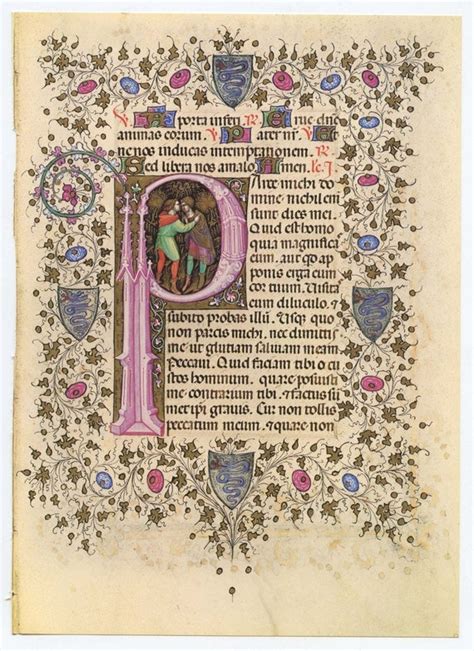 V A porta inferi R Erue dne
animas eorum. V Pater nr V Et
ne nos inducas intemptationem. R
Sed libera nos amalo Amen. lc. I.
Parce michi do
mine nichil eni
sunt dies mei.
Quid est homo
quia magnificas
eum. aut qd ap
ponis erga eum
cor tuum. Visitas
eum diluculo. &
subito probas illū. Usqꝫ quo
non parcis michi. nec dimittis
me ut glutiam salivam meam
Peccavi. Quid faciam tibi o cu
stos hominum. quare posuisti
me contrarium tibi. & factus sū
michi metipi gravis. Cur non tollis
peccatum meum. & quare non